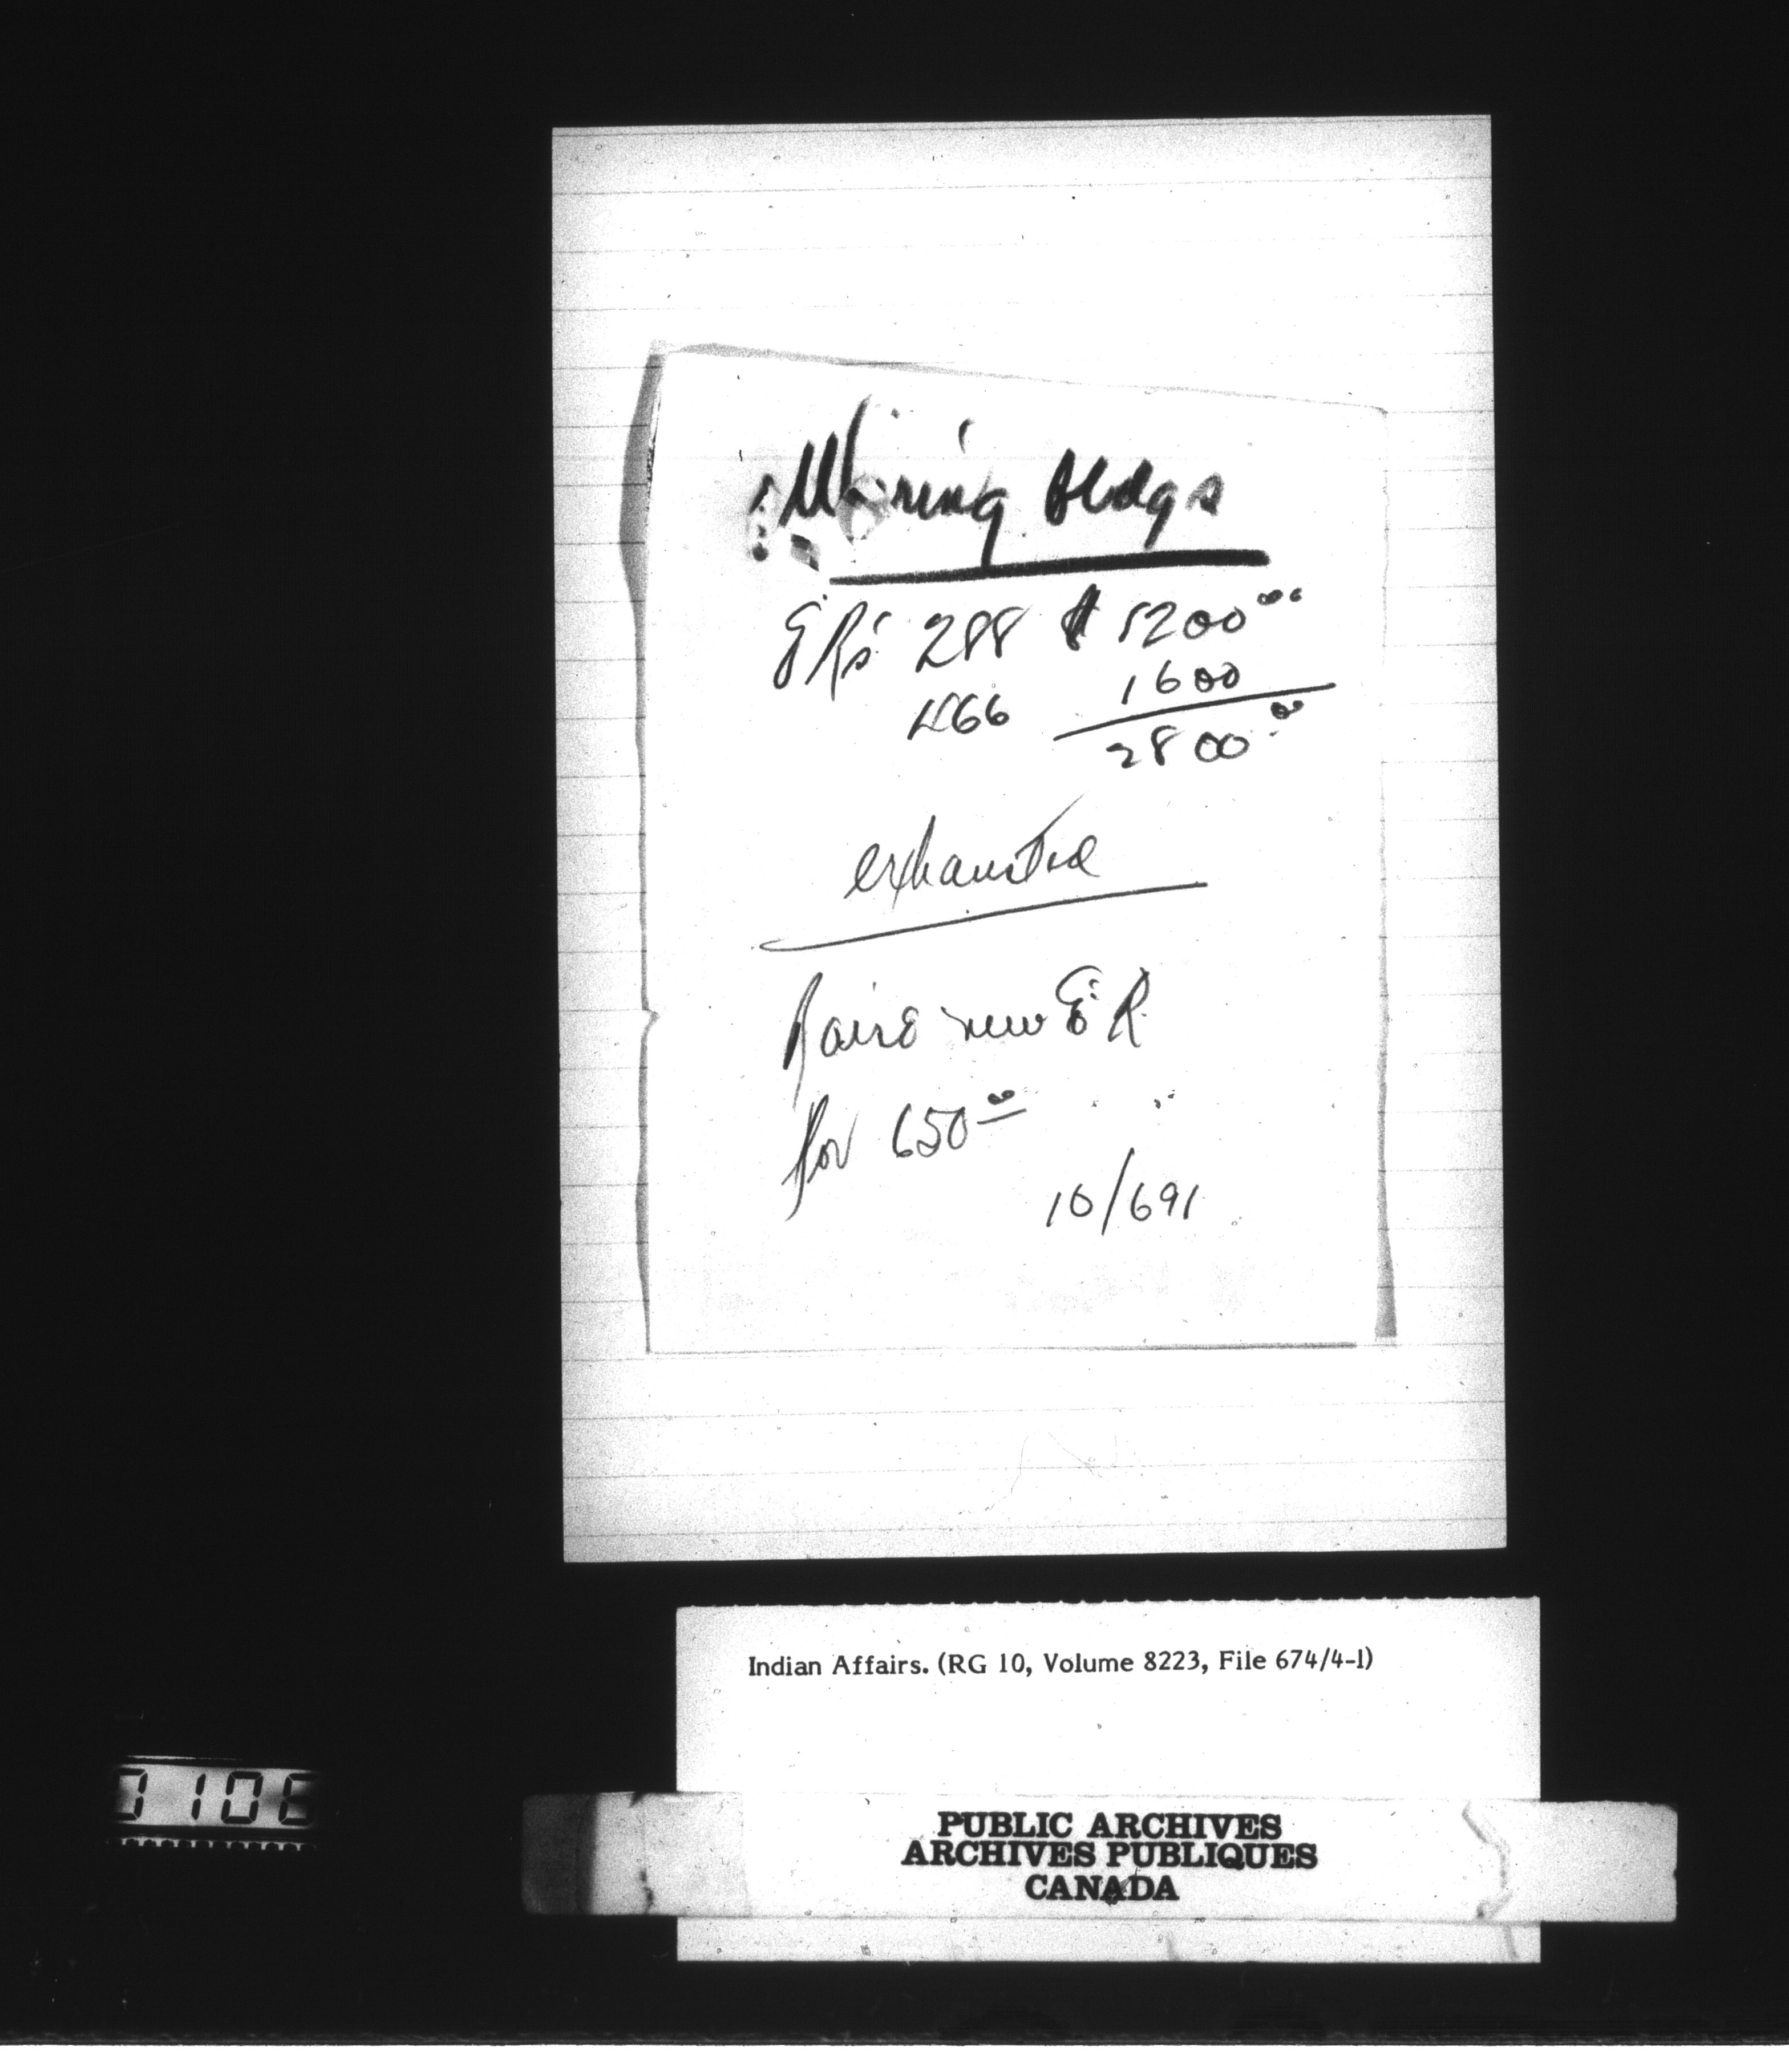 Wiring Bldgs
ERs' 288 $ 1200 00
466 1600
2800 00
exhausted
Raise new E.R.
for 650 00
10/691
Indian Affairs. (RG 10, Volume 8223, File 674/4-1)
PUBLIC ARCHIVES
ARCHIVES PUBLIQUES
CANADA